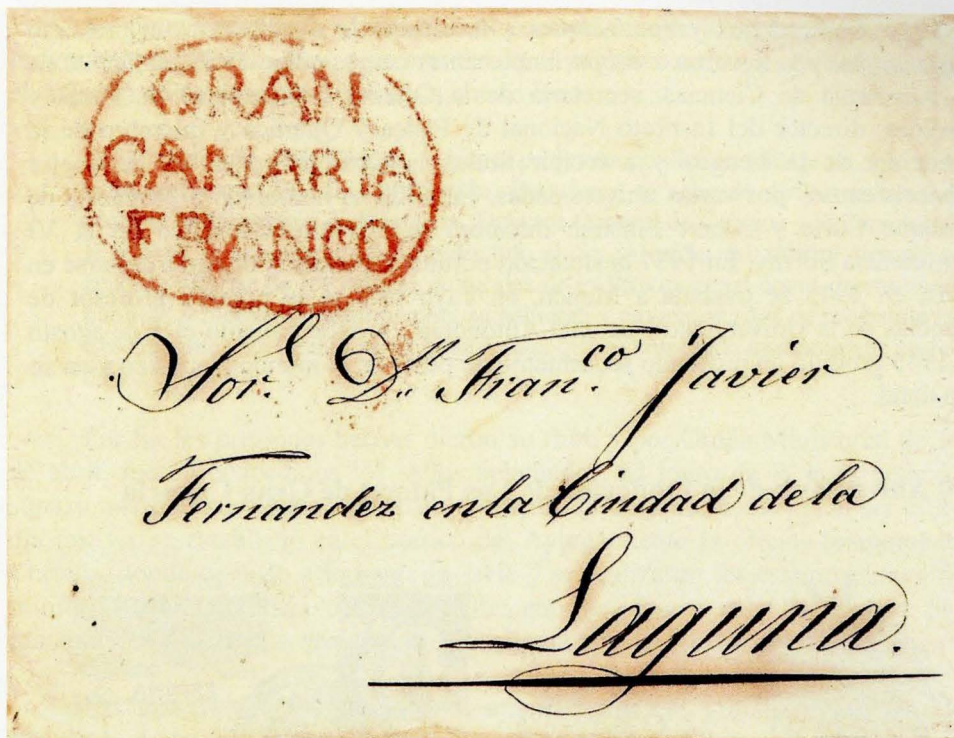 GRAN
CANARIA
FRANCO
Sor. Dn. Fran.co Javier
Fernandez en la Ciudad de la
Laguna.